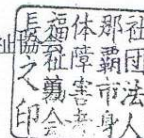 社団法人
那覇市身
体障害者
福祉協会
長之印